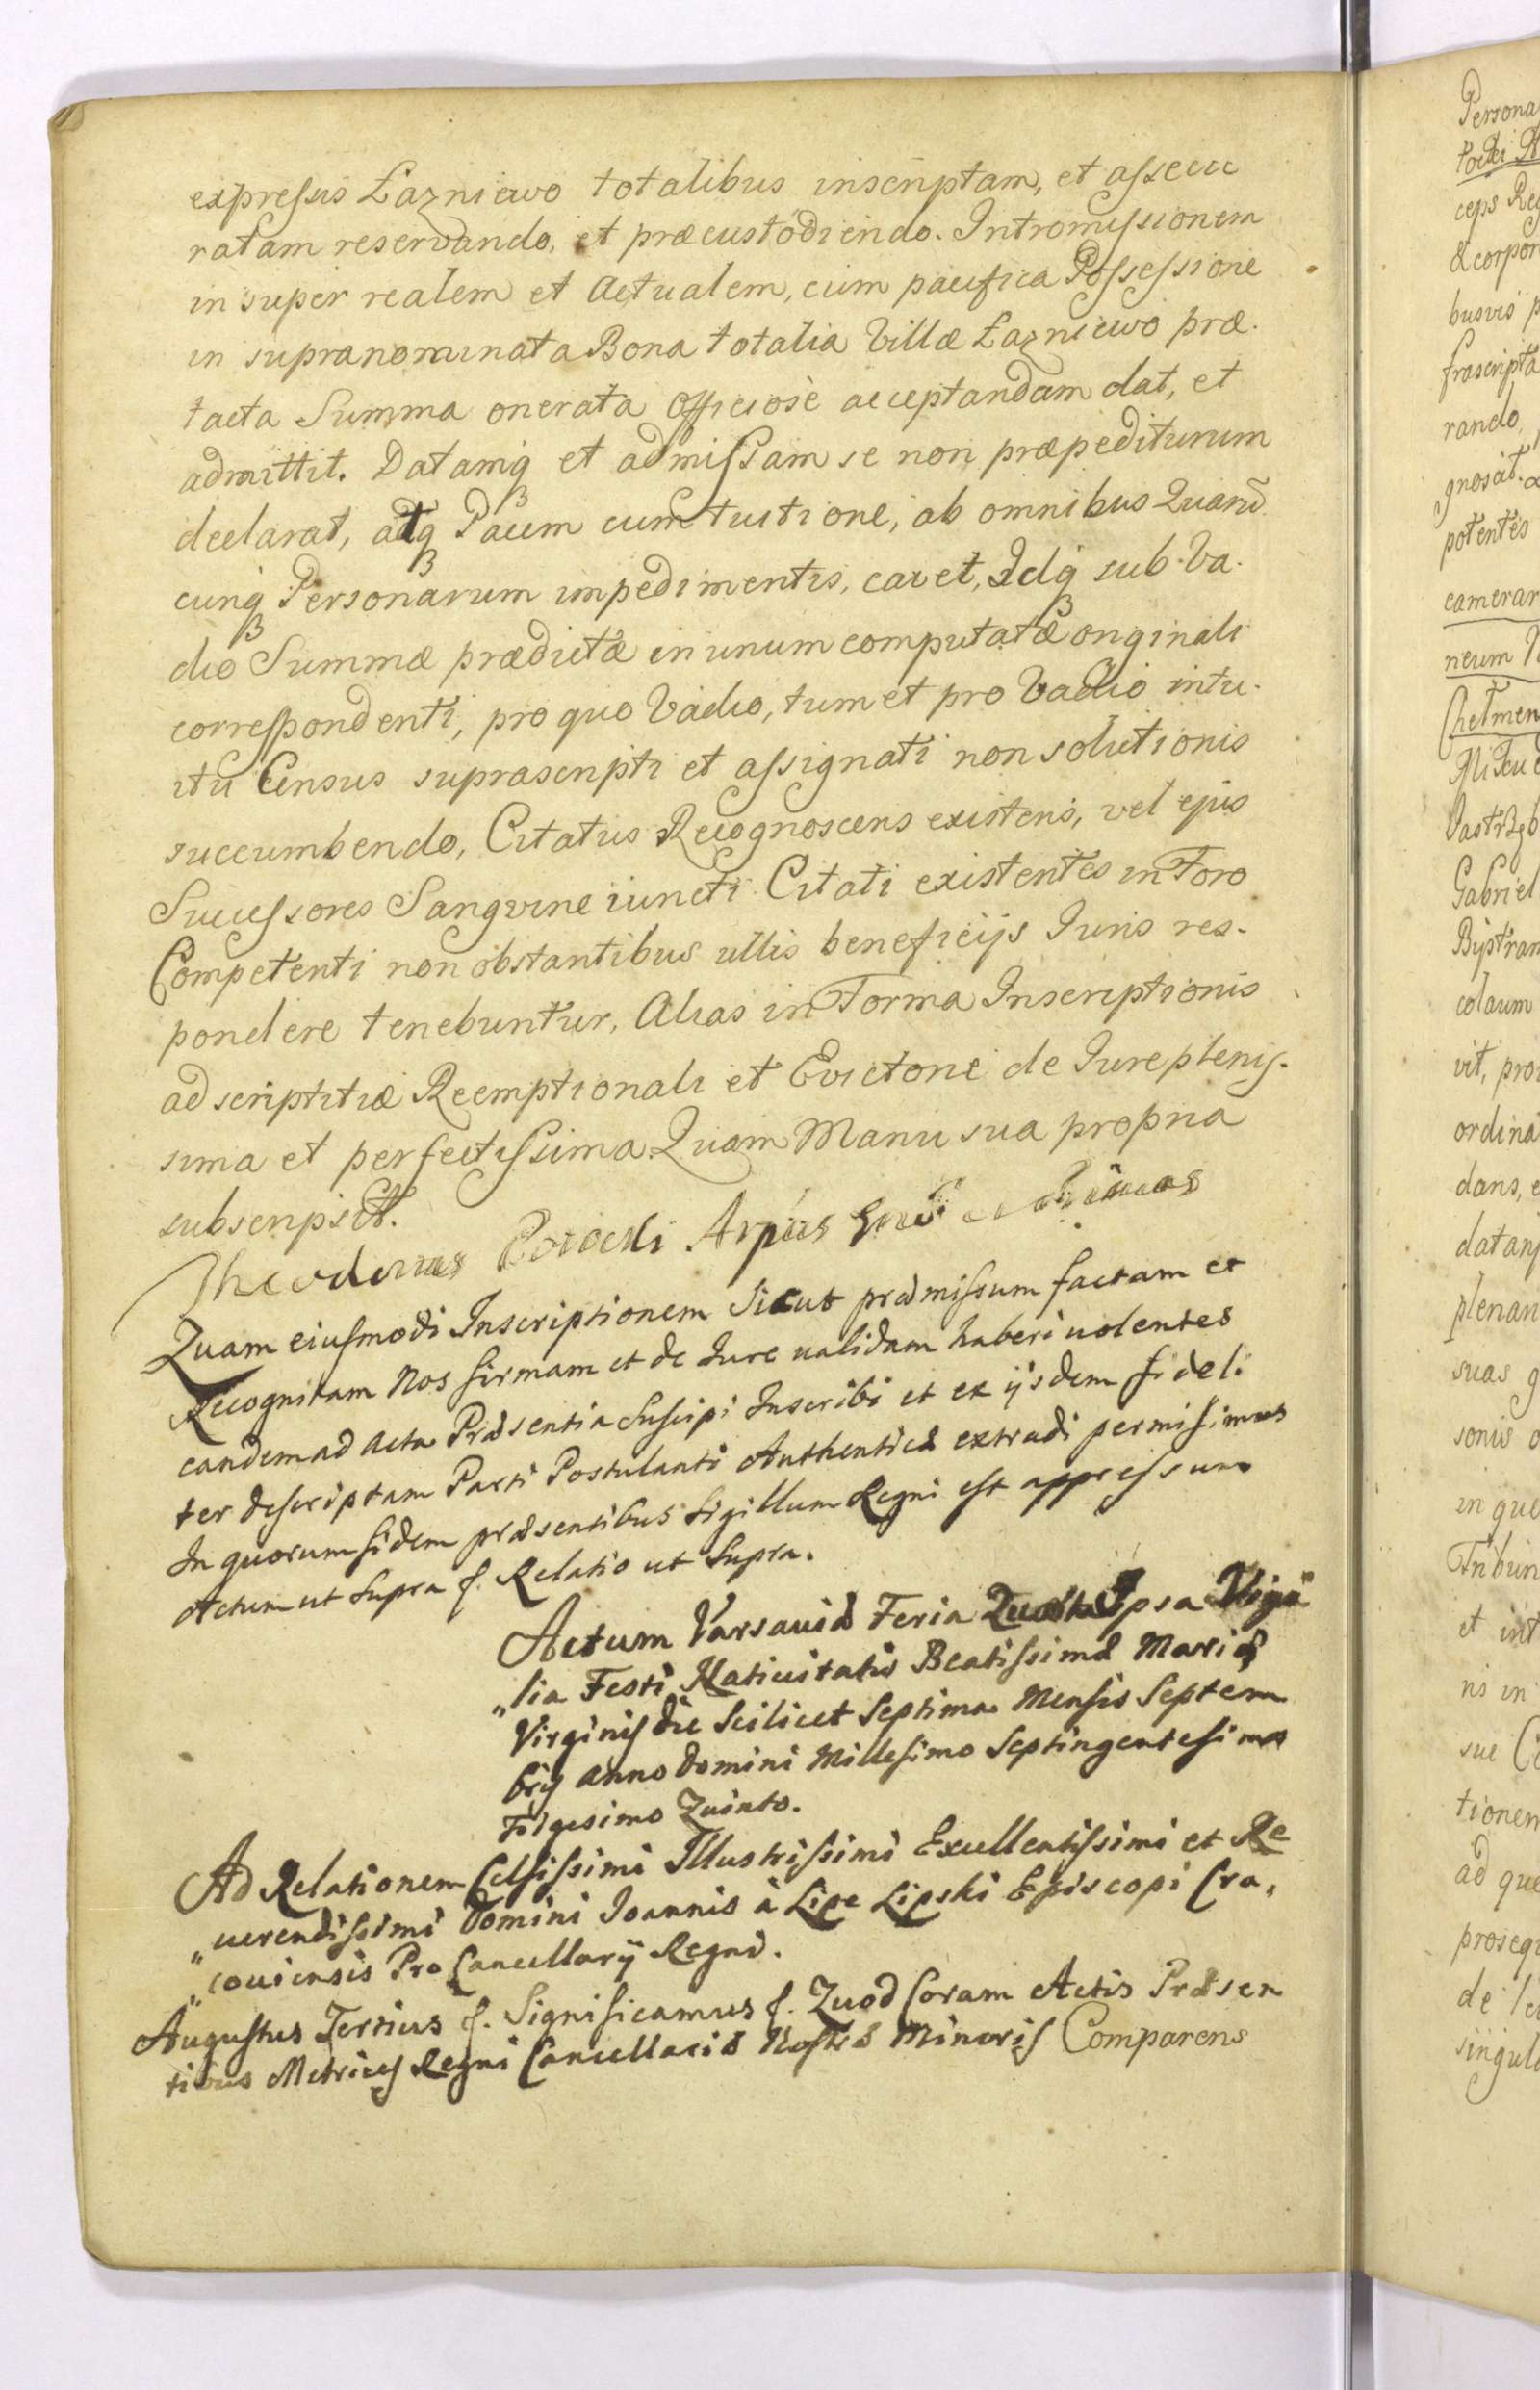 expressis Łazniewo totalibus inscriptam, et assecu
ratam reservando, et præcustodiendo. Intromissionem
in super realem et Actualem, cum pacifica Possessione
in supranominata Bona totalia Villæ Łazniewo præ.
tacta Summa onerata Officiosè acceptandam dat, et
admittit. Datamq3 et admissam se non præpediturum
declarat, atq3 Pacem cum tuitione, ab omnibus Quarũ
cunq3 Personarum impedimentis, cavet, Idq3 sub Va.
dio Summæ prædictæ in unum computatæ originali
correspondenti, pro quo Vadio, tum et pro Vadio intu.
itu Census suprascripti et assignati non solutionis
succumbendo, Citatus Recognoscens existens, vel ejus
Successores Sangvine iuncti Citati existentes in Foro
Competenti non obstantibus ullis beneficijs Juris res.
pondere tenebuntur, Alias in Forma Inscriptionis
adscriptitiæ Reemptionali et Evictoriè de Jure plenis.
sima et perfectissima. Quam Manu sua propria
subscripsit.
Theodorus
Quam eiusmodi Inscriptionem Sicut præmissum factam et
Recognitam Nos firmam et de Jure validam haberi volentes
eandem ad Acta Præsentia Suscipi Inscribi et ex ijsdem fideli
ter descriptam Parti Postulanti Authenticè extradi permisimus
In quorum fidem præsentibus Sigillum Regni est appressum
Actum ut Supra f. Relatio ut Supra.
Actum Varsaviæ Feria Quarta Ipsa Vigi
„lia Festi Nativitatis Beatissimæ Mariæ
Virginis die Scilicet Septima Mensis Septem
bris Anno Domini Millesimo Septingentesimo
Trigesimo Quinto.
Ad Relationem Celsissimi Illustrissimi Excellentissimi et Re
„uerendissimi Domini Joannis à Lipe Lipski Episcopi Cra„
„couiensis Pro Cancellarij Regni.
Augustus Tertius f. Significamus f. Quod Coram Actis Præsen
tibus Metrices Regni Cancellariæ Nostræ Minoris Comparens
Persona
ceps Reg
& corpor
busvis p
frascripta
rando,
gnosit.
potentes
camerar
neum
Chełmen
Gabriel
Bystram
colaum
vit, pro
ordina
dans, e
datam
plenan
suas g
sonis o
in que
Tribun
et int
ns in
sue Ci
tionem
ad que
prosequ
de
singula